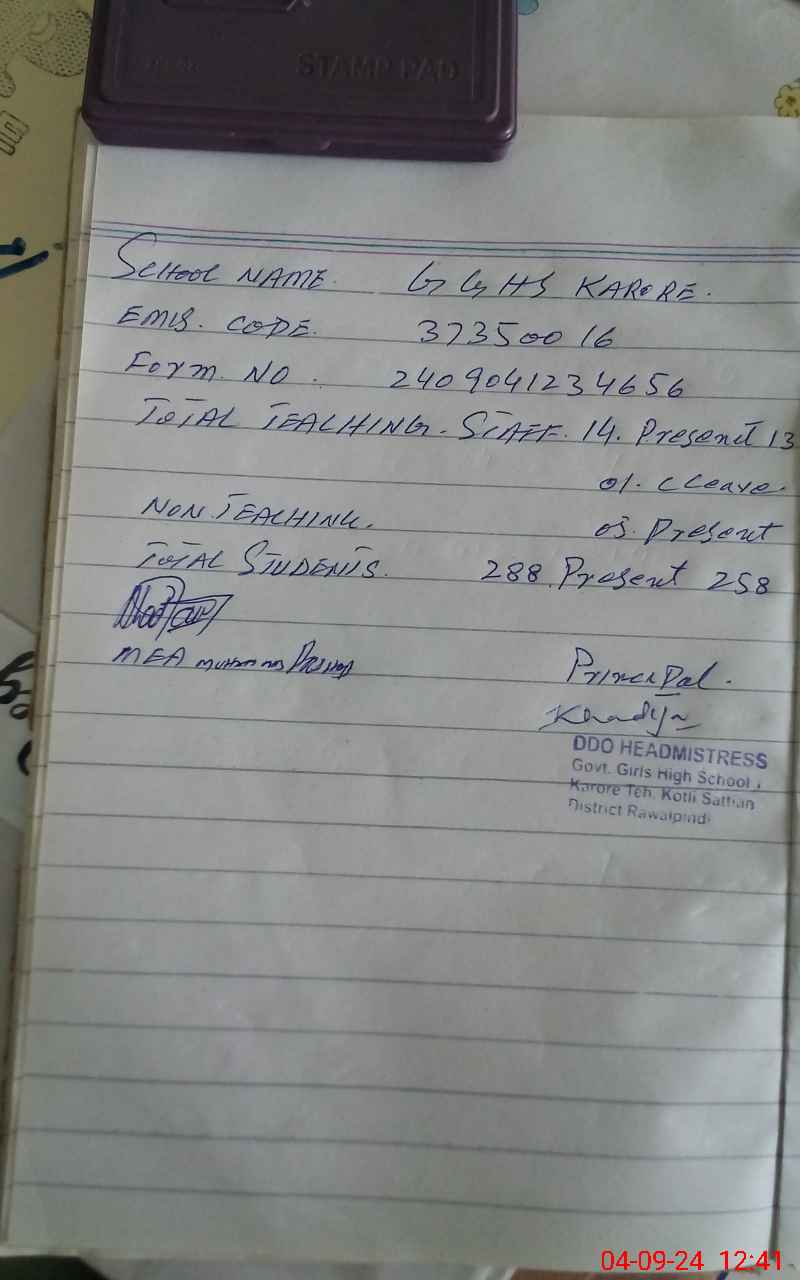 STAMP PAD
SCHOOL NAME. GGHS KARORE.
EMIS. CODE. 37350016
Form. NO. 2409041234656
TOTAL TEACHING. STAFF. 14. Present 13
01. C Leave.
NON TEACHING. 03. Present
TOTAL STUDENTS. 288. Present 258
MEA
Principal.
Khadija
DDO HEADMISTRESS
Govt. Girls High School
Karore Teh. Kotli Sattian
District Rawalpindi
04-09-24 12:41